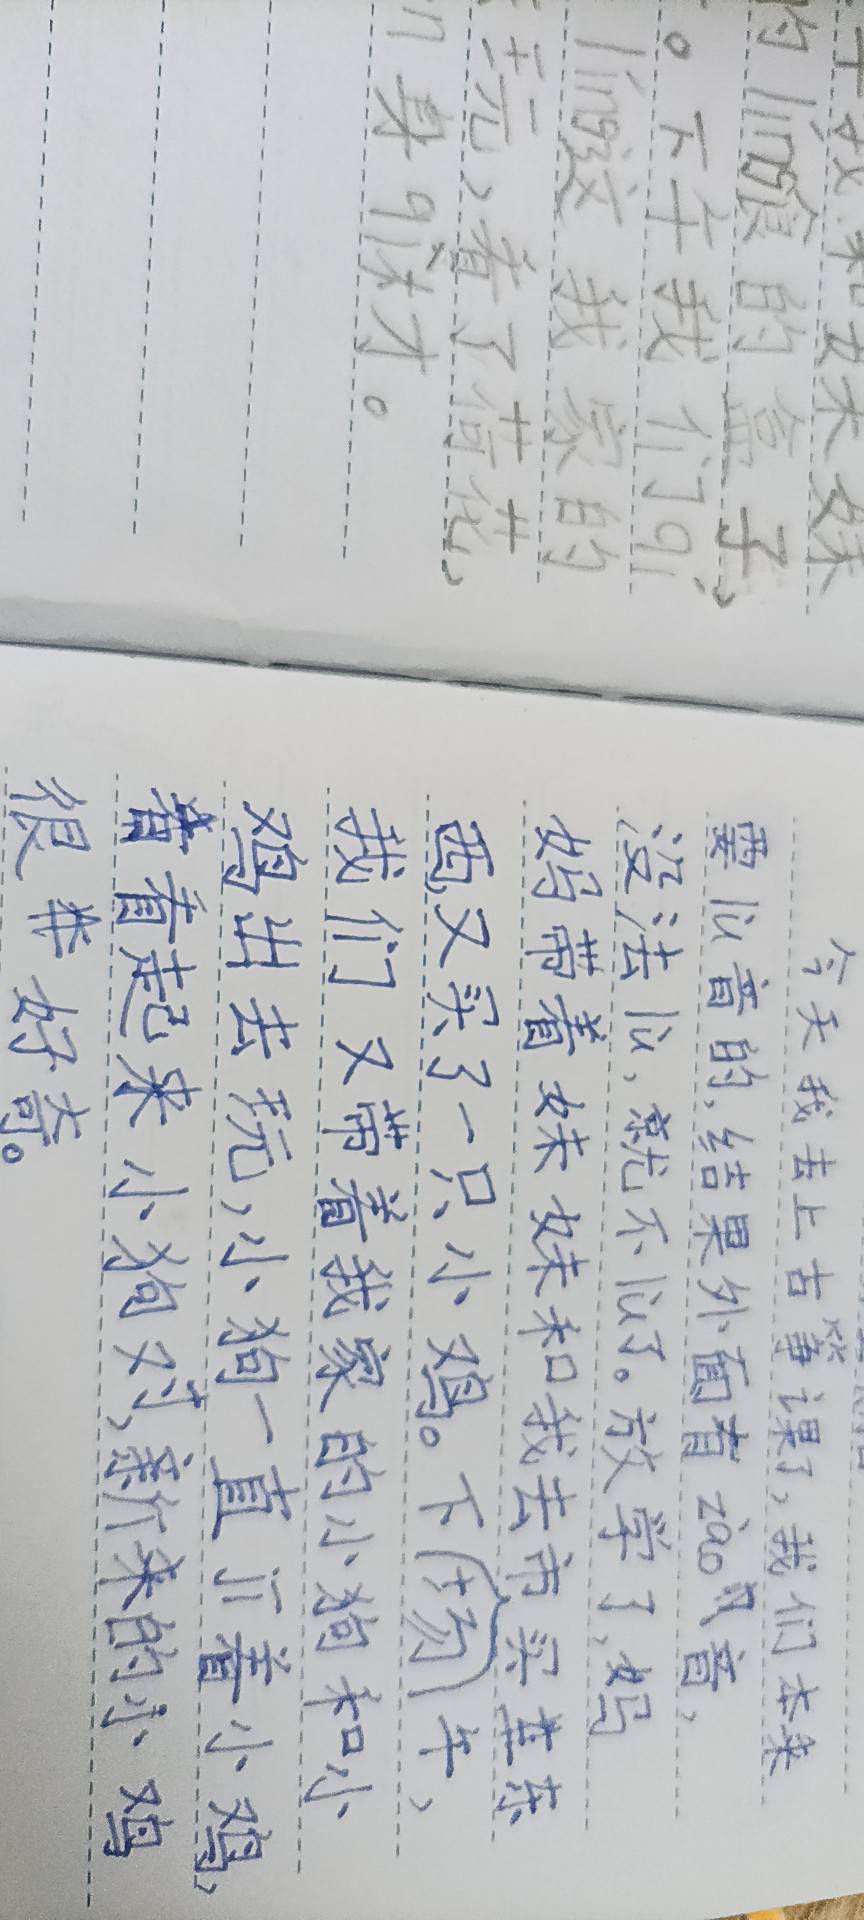 我和妹妹
的líng食的盒子,
。下午我们qù
我家的
玩,看了荷花,
们身
今天我去上古筝课了,我们本来
要lù音的,结果外面有zào音,
没法lù,就不lù了。放学了,妈
妈带着妹妹和我去市买东
西又买了一只小鸡。下(场)午,
我们又带着我家的小狗和小
鸡出去玩,小狗一直着小鸡,
看起来小狗对,新来的小鸡
很好奇。